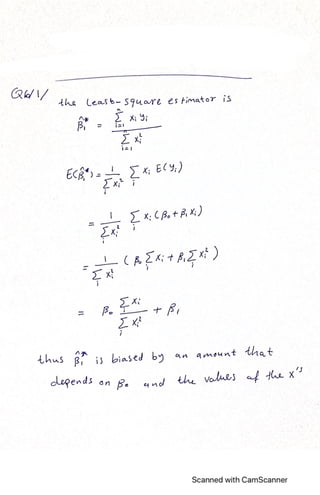 Q(b)1/ the least-square estimator is
β̂₁* = Σᵢ₌₁ⁿ xᵢ yᵢ / Σᵢ₌₁ xᵢ²
E(β̂₁*) = 1/Σᵢ xᵢ² Σᵢ xᵢ E(yᵢ)
= 1/Σᵢ xᵢ² Σᵢ xᵢ (β₀ + β₁ xᵢ)
= 1/Σᵢ xᵢ² (β₀ Σᵢ xᵢ + β₁ Σᵢ xᵢ²)
= β₀ Σᵢ xᵢ / Σᵢ xᵢ² + β₁
thus β̂₁* is biased by an amount that
depends on β₀ and the values of the x's
Scanned with CamScanner